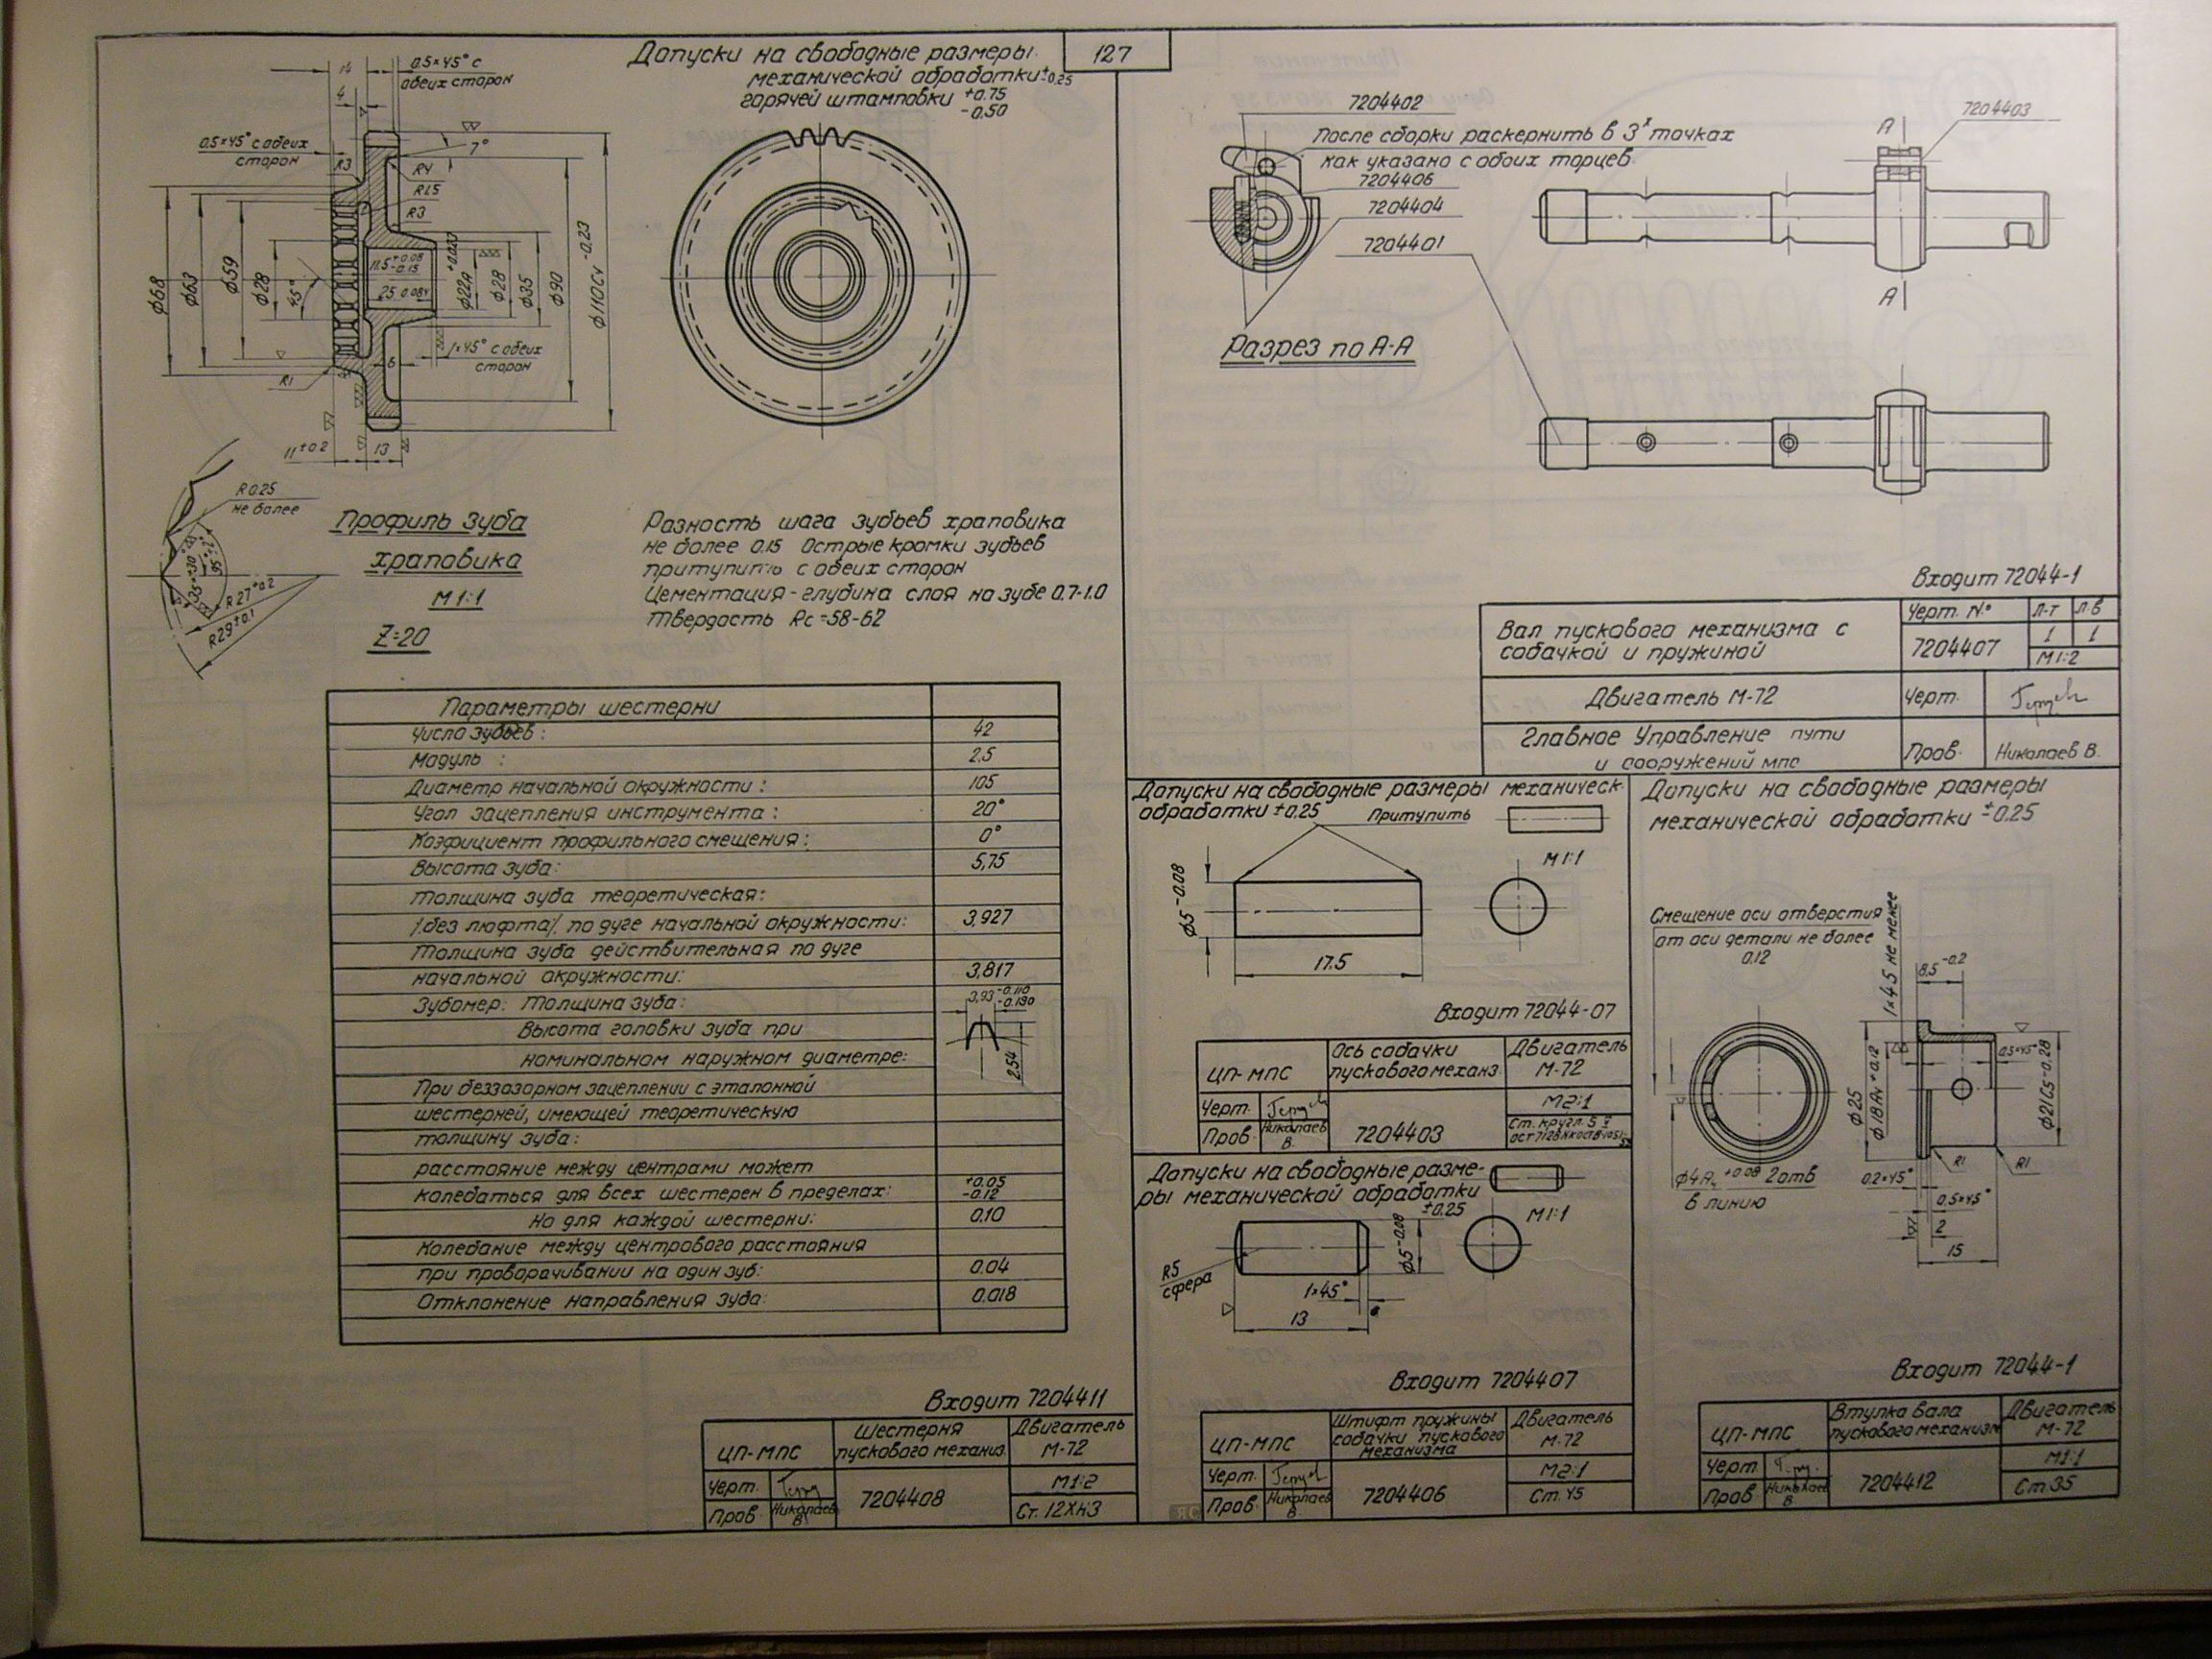 127
Допуски на свободные размеры
механической обработки ±0.25
горячей штамповки +0.75
-0.50
14
0.5×45° с
обеих сторон
4
0.5×45° с обеих
сторон
R3
7°
R4
R1.5
R3
⌀68
⌀63
⌀59
⌀28
45°
11.5 +0.08
-0.15
25 -0.084
⌀22А +0.023
⌀28
⌀35
⌀90
⌀110С4 -0.23
1×45° с обеих
сторон
6
R1
11 ±0.2
13
R 0.25
не более
R27 ±0.2
R29 ±0.1
Профиль зуба
храповика
М 1:1
Z=20
Разность шага зубьев храповика
не более 0.15 Острые кромки зубьев
притупить с обеих сторон
Цементация - глубина слоя на зубе 0.7-1.0
Твердость Rc=58-62
Параметры шестерни
Число зубьев: 42
Модуль : 2,5
Диаметр начальной окружности: 105
Угол зацепления инструмента: 20°
Коэфициент профильного смещения: 0°
Высота зуба: 5,75
Толщина зуба теоретическая:
/без люфта/ по дуге начальной окружности: 3,927
Толщина зуба действительная по дуге
начальной окружности: 3,817
Зубомер: Толщина зуба: 3,93 -0.110
-0.190
Высота головки зуба при
номинальном наружном диаметре: 2.54
При беззазорном зацеплении с эталонной
шестерней, имеющей теоретическую
толщину зуба:
расстояние между центрами может
колебаться для всех шестерен в пределах: +0.05
-0.12
Но для каждой шестерни: 0.10
Колебание между центрового расстояния
при проворачивании на один зуб: 0.04
Отклонение направления зуба: 0.018
Входит 7204411
ЦП-МПС
Шестерня
пускового механиз.
Двигатель
М-72
Черт.
Пров.
Николаев
В.
7204408
М1:2
Ст. 12ХН3
7204402
После сборки раскернить в 3х точках
как указано с обоих торцев.
7204406
7204404
7204401
Разрез по А-А
А
А
7204403
Входит 72044-1
Вал пускового механизма с
собачкой и пружиной
Черт. №
л-т
л-в
7204407
1
1
М1:2
Двигатель М-72
Черт.
Главное Управление пути
и сооружений мпс
Пров.
Николаев В.
Допуски на свободные размеры механическ.
обработки ±0.25
Притупить
М 1:1
⌀5 -0.08
17.5
Входит 72044-07
ЦП-МПС
Ось собачки
пускового механз.
Двигатель
М-72
Черт.
Пров.
Николаев
В.
7204403
М2:1
Ст. кругл. 5
Допуски на свободные разме-
ры механической обработки
±0.25
М1:1
R5
сфера
1×45°
⌀5 -0.08
13
Входит 7204407
ЦП-МПС
Штифт пружины
собачки пускового
механизма
Двигатель
М-72
Черт.
Пров.
Николаев
В.
7204406
М2:1
Ст. 45
Допуски на свободные размеры
механической обработки ±0.25
Смещение оси отверстия
от оси детали не более
0.12
1×45 не менее
8,5 -0.2
⌀25
⌀18А4 +0.12
0.5×45°
⌀21С5 -0.28
⌀4А4 +0.08 2отв
в линию
0.2×45°
R1
R1
0.5×45°
2
15
Входит 72044-1
ЦП-МПС
Втулка вала
пускового механизм
Двигатель
М-72
Черт.
Пров.
Николаев
В.
7204412
М1:1
Ст 35